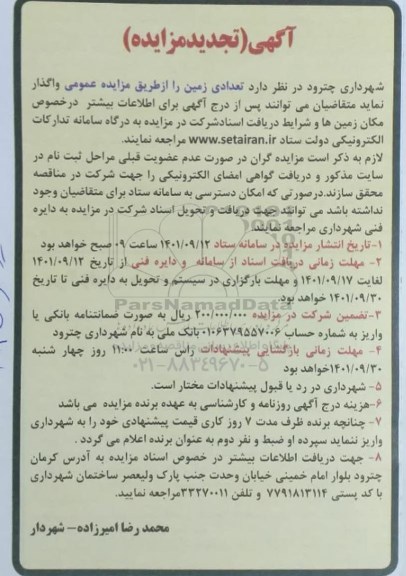 آگهی(تجدیدمزایده)
شهرداری چترود در نظر دارد تعدادی زمین را ازطریق مزایده عمومی واگذار
نماید متقاضیان می توانند پس از درج آگهی برای اطلاعات بیشتر درخصوص
مکان زمین ها و شرایط دریافت اسنادشرکت در مزایده به درگاه سامانه تدارکات
الکترونیکی دولت ستاد www.setairan.ir مراجعه نمایند.
لازم به ذکر است مزایده گران در صورت عدم عضویت قبلی مراحل ثبت نام در
سایت مذکور و دریافت گواهی امضای الکترونیکی را جهت شرکت در مناقصه
محقق سازند.درصورتی که امکان دسترسی به سامانه ستاد برای متقاضیان وجود
نداشته باشد می توانند جهت دریافت و تحویل اسناد شرکت در مزایده به دایره
فنی شهرداری مراجعه نمایند.
۱-تاریخ انتشار مزایده در سامانه ستاد ۱۴۰۱/۰۹/۱۲ ساعت ۰۹ صبح خواهد بود
۲- مهلت زمانی دریافت اسناد از سامانه و دایره فنی از تاریخ ۱۴۰۱/۰۹/۱۲
لغایت ۱۴۰۱/۰۹/۱۷ و مهلت بارگزاری در سیستم و تحویل به دایره فنی تا تاریخ
۱۴۰۱/۰۹/۳۰ خواهد بود.
ParsNamadData
۳-تضمین شرکت در مزایده ۲۰۰/۰۰۰/۰۰۰ ریال به صورت ضمانتنامه بانکی یا
واریز به شماره حساب ۰۱۰۶۳۷۹۵۵۷۰۰۶ بانک ملی به نام شهرداری چترود
۴- مهلت زمانی بازگشایی پیشنهادات راس ساعت ۱۱:۰۰ روز چهار شنبه
۱۴۰۱/۰۹/۳۰خواهد بود
۰۲۱-۸۸۳۴۹۶۷۰-۵
۵- شهرداری در رد یا قبول پیشنهادات مختار است.
۶-هزینه درج آگهی روزنامه و کارشناسی به عهده برنده مزایده می باشد
۷- چنانچه برنده ظرف مدت ۷ روز کاری قیمت پیشنهادی خود را به شهرداری
واریز ننماید سپرده او ضبط و نفر دوم به عنوان برنده اعلام می گردد .
۸- جهت دریافت اطلاعات بیشتر در خصوص اسناد مزایده به آدرس کرمان
چترود بلوار امام خمینی خیابان وحدت جنب پارک ولیعصر ساختمان شهرداری
با کد پستی ۷۷۹۱۸۱۳۱۱۴ و تلفن ۳۳۲۷۰۰۱۱مراجعه نمایید.
محمد رضا امیرزاده- شهردار